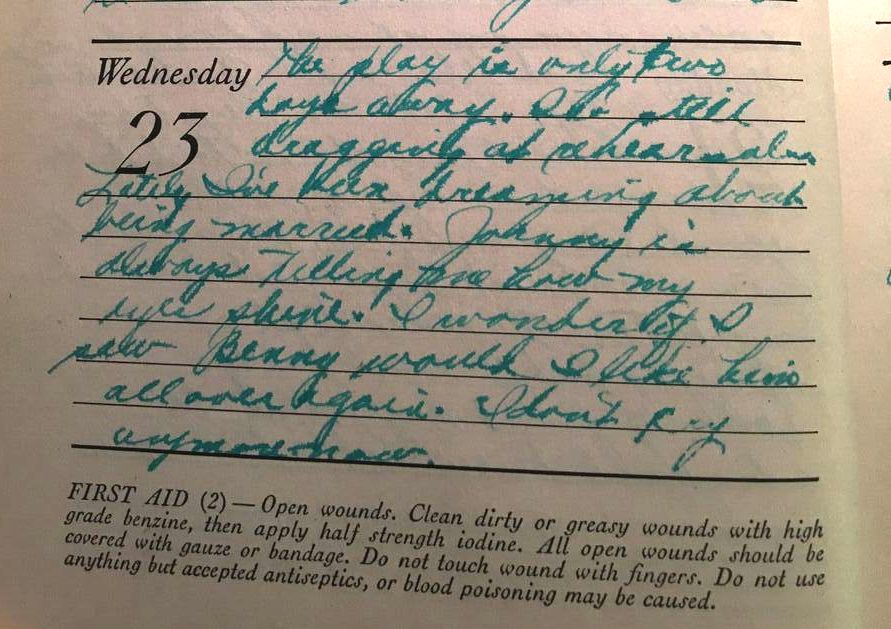 Wednesday The play is only two
23 days away. It's still
dragging at rehearsals.
Lately I've been dreaming about
being married. Johnny is
always telling me how my
eyes shine. I wonder if I
saw Benny would I like him
all over again. I don't cry
anymore now.
FIRST AID (2) — Open wounds. Clean dirty or greasy wounds with high
grade benzine, then apply half strength iodine. All open wounds should be
covered with gauze or bandage. Do not touch wound with fingers. Do not use
anything but accepted antiseptics, or blood poisoning may be caused.